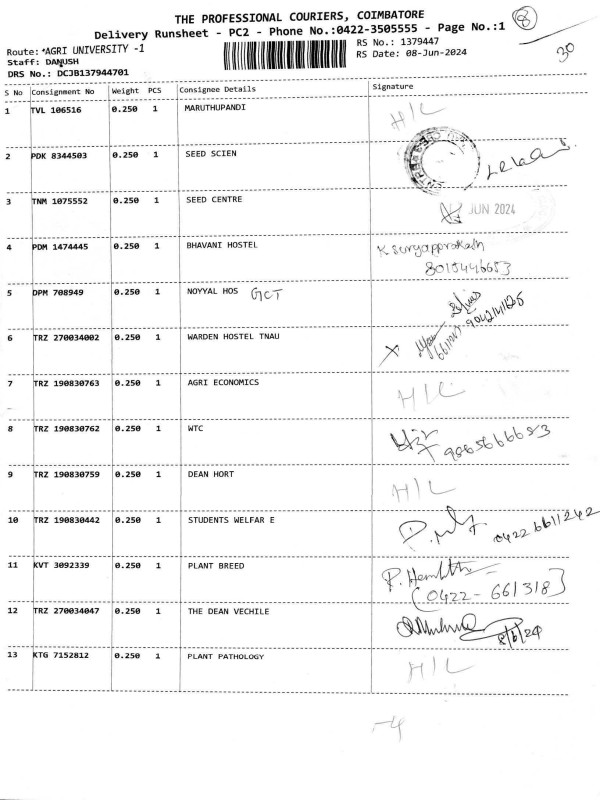 THE PROFESSIONAL COURIERS, COIMBATORE
Delivery Runsheet - PC2 - Phone No.:0422-3505555 - Page No.:1
8
30
Route:*AGRI UNIVERSITY -1
RS No.: 1379447
Staff: DANUSH
RS Date: 08-Jun-2024
DRS No.: DCJB137944701
S No Consignment No Weight PCS Consignee Details Signature
1 TVL 106516 0.250 1 MARUTHUPANDI H/L
2 PDK 8344503 0.250 1 SEED SCIEN
3 TNM 1075552 0.250 1 SEED CENTRE JUN 2024
4 PDM 1474445 0.250 1 BHAVANI HOSTEL K Suryapprakash
8015446653
5 DPM 708949 0.250 1 NOYYAL HOS GCT
6 TRZ 270034002 0.250 1 WARDEN HOSTEL TNAU
7 TRZ 190830763 0.250 1 AGRI ECONOMICS H/L
8 TRZ 190830762 0.250 1 WTC 9865666653
9 TRZ 190830759 0.250 1 DEAN HORT H/L
10 TRZ 190830442 0.250 1 STUDENTS WELFAR E 0422 6611242
11 KVT 3092339 0.250 1 PLANT BREED
(0422-661318)
12 TRZ 270034047 0.250 1 THE DEAN VECHILE 8/6/24
13 KTG 7152812 0.250 1 PLANT PATHOLOGY H/L
-4